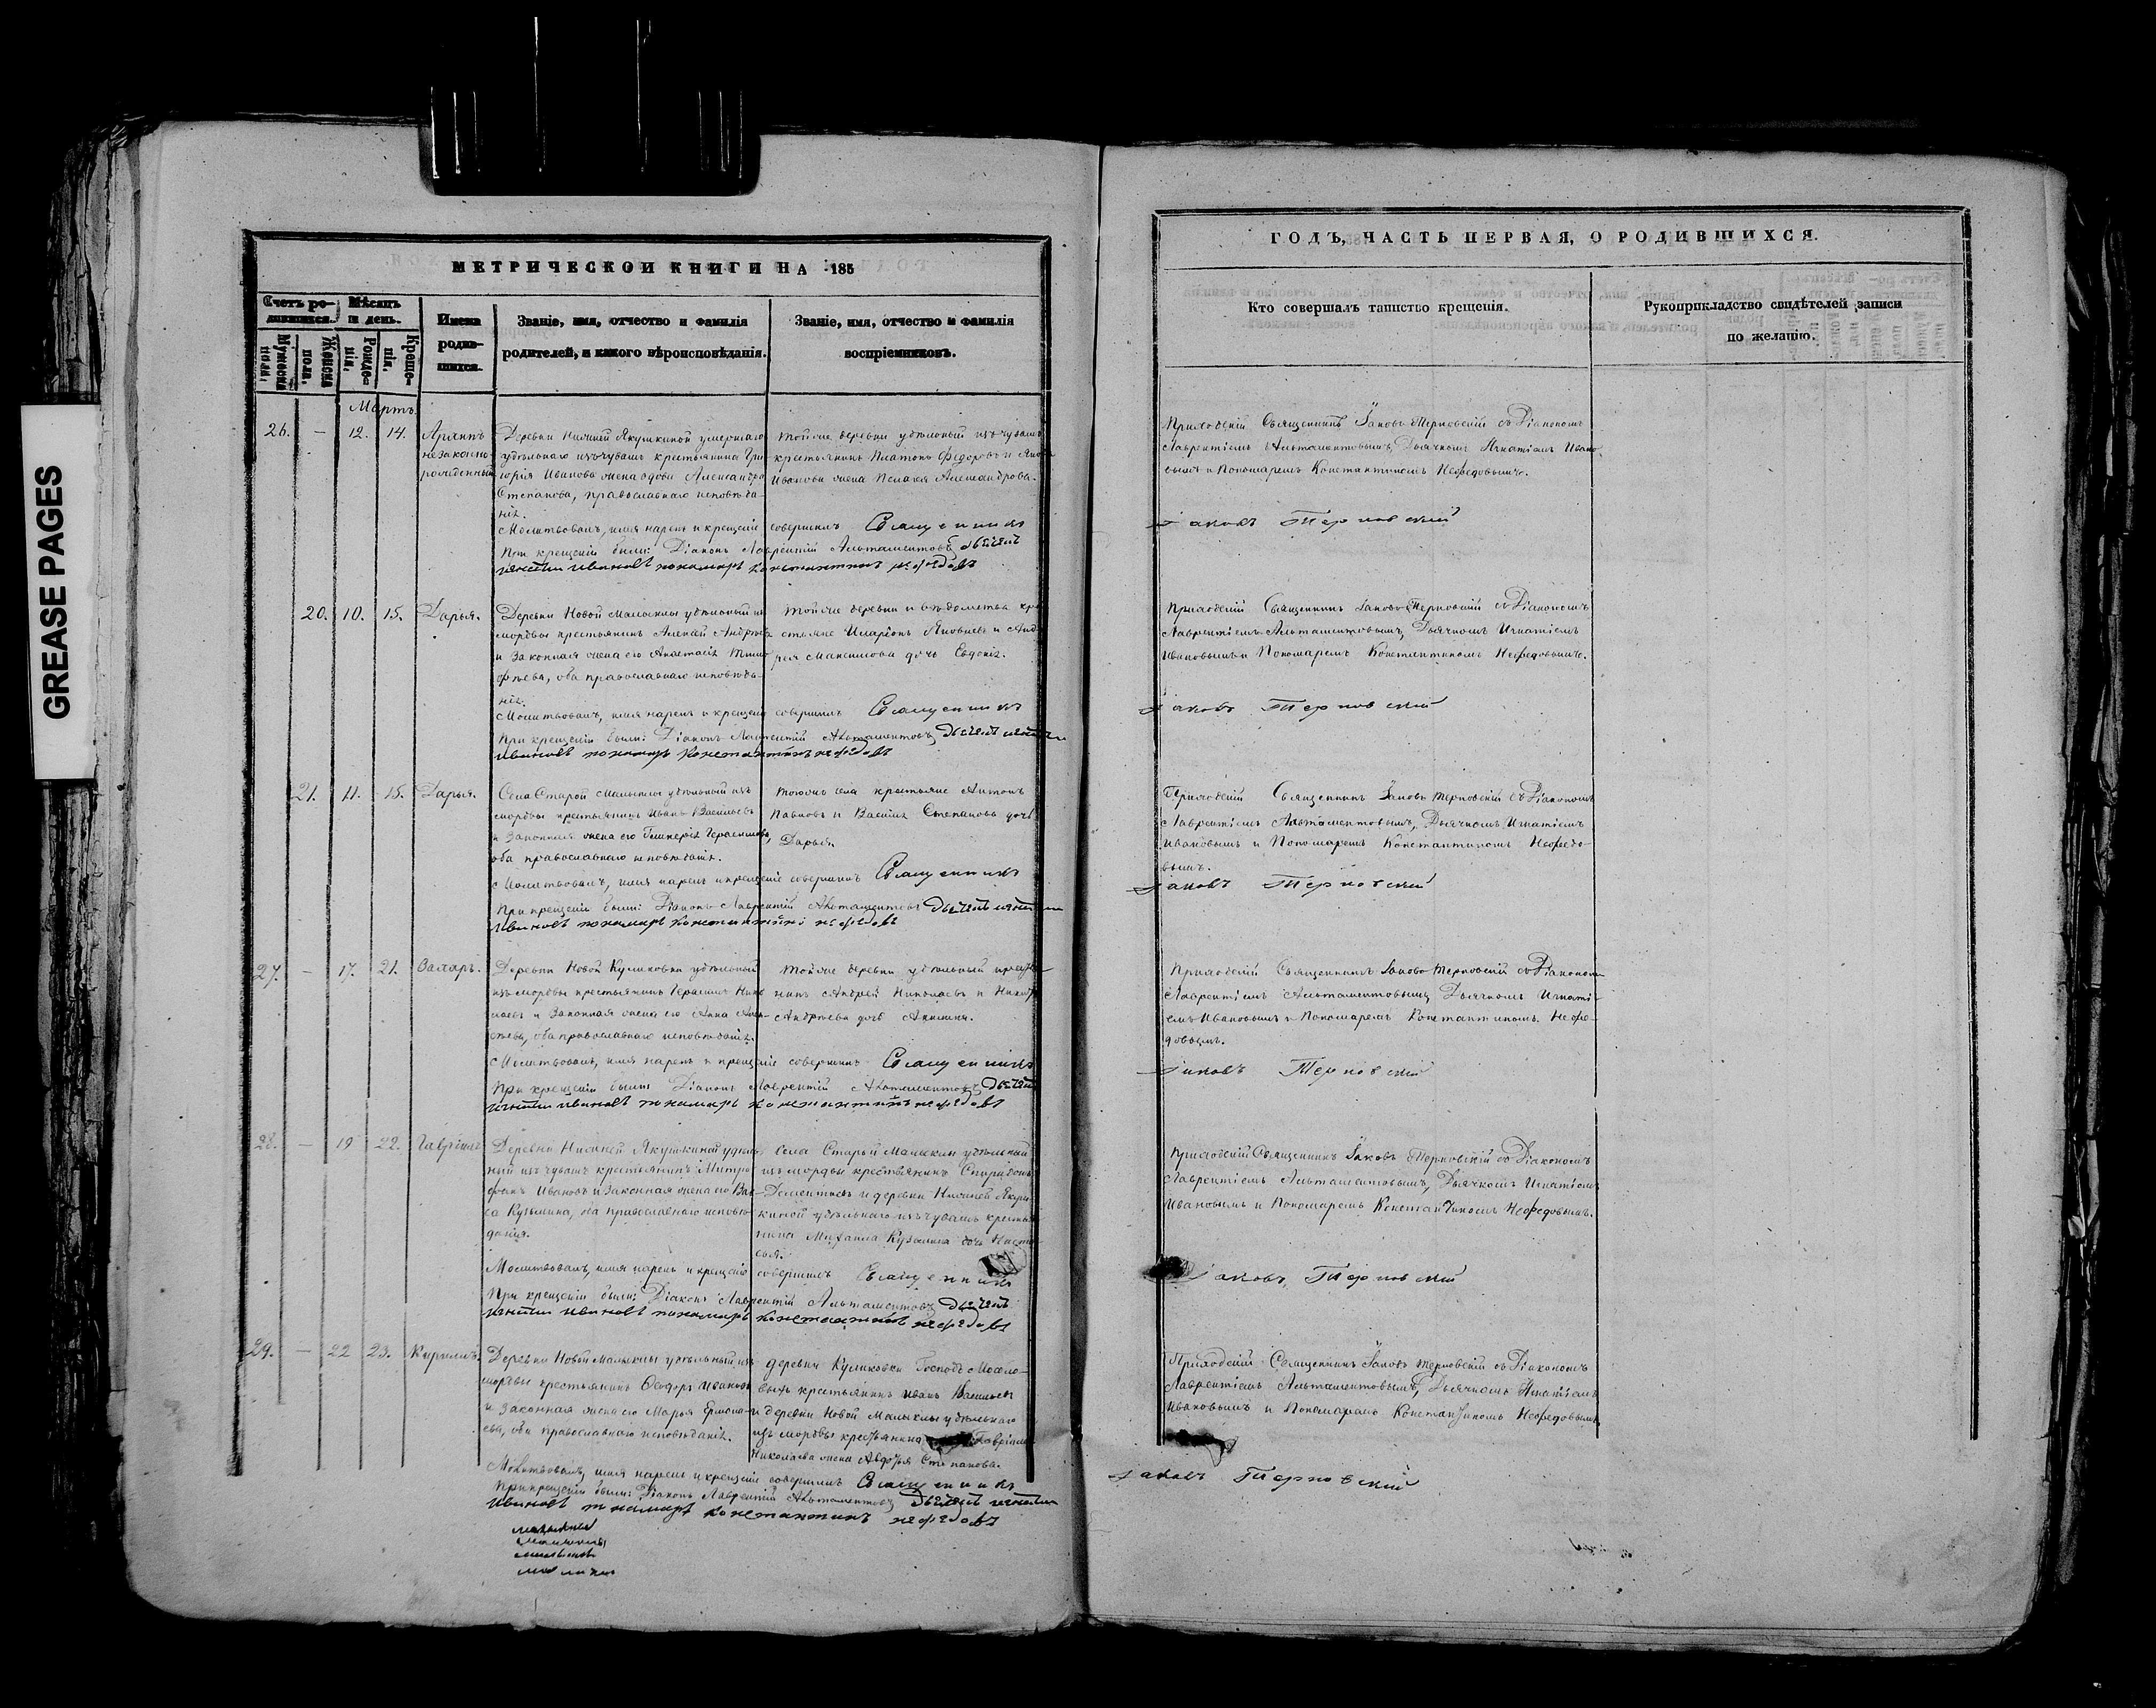 GREASE PAGES
МЕТРИЧЕСКОЙ КНИГИ НА 185
Счетъ родившихся.
Мужеска пола.
Женска пола.
Мѣсяцъ и день.
Рожденія.
Крещенія.
Имена родившихся.
Званіе, имя, отчество и фамилія
родителей, и какого вѣроисповѣданія.
Званіе, имя, отчество и фамилія
воспріемниковъ.
Мартъ.
26. — 12. 14.
незаконно
рожденный
Деревни Нижней Якушкиной умершаго
удѣльнаго изъ чувашъ крестьянина Гри-
горія Иванова жена вдова Александра
Степанова, православнаго исповѣда-
нія.
Тойже деревни удѣльный изъ чувашъ
крестьянинъ Платонъ Федоровъ и
Иванова жена Пелагея Александрова.
Молитвовалъ, имя нарекъ и крещеніе совершилъ Священникъ
При крещеніи были: Діаконъ Лаврентій Альтаментовъ, дьячекъ
игнатии ивановъ пономарь константинъ нефедовъ
20. 10. 15. Дарья.
Деревни Новой Малыклы удѣльный изъ
мордвы крестьянинъ Алексѣй Андрѣевъ
и законная жена его Анастасія Тимо-
фѣева, оба православнаго исповѣда-
нія.
Тойже деревни и вѣдомства кре-
стьяне Иларіонъ Яковлевъ и Анд-
рея Максимова дочь Евдокія.
Молитвовалъ, имя нарекъ и крещеніе совершилъ Священникъ
При крещеніи были: Діаконъ Лаврентій Альтаментовъ, дьячекъ игнатии
ивановъ пономарь константинъ нефедовъ
21. 11. 15. Дарья.
Села Старой Малыклы удѣльный изъ
мордвы крестьянинъ Иванъ Васильевъ
и законная жена его Гликерія Герасимова,
оба православнаго исповѣданія.
Тогожъ села крестьяне Антонъ
Павловъ и Василія Степанова дочь
Дарья
Молитвовалъ, имя нарекъ и крещеніе совершилъ Священникъ
При крещеніи были: Діаконъ Лаврентій Альтаментовъ дьячекъ игнатии
ивановъ пономарь константинъ нефедовъ
27. — 17. 21. Захаръ.
Деревни Новой Куликовки удѣльный
изъ мордвы крестьянинъ Герасимъ Нико-
лаевъ и законная жена его Анна Алек-
сѣева, оба православнаго исповѣданія.
Тойже деревни удѣльный крестья-
нинъ Андрей Николаевъ и
Андрѣева дочь Акилина.
Молитвовалъ, имя нарекъ и крещеніе совершилъ Священникъ
При крещеніи были: Діаконъ Лаврентій Альтаментовъ, дьячекъ
игнатии ивановъ пономарь константинъ нефедовъ
28. — 19 22. Гавріилъ
Деревни Нижней Якушкиной удѣль-
ный изъ чувашъ крестьянинъ Митро-
фанъ Ивановъ и законная жена его Вас-
са Кузьмина, оба православнаго исповѣ-
данія.
Села Старой Малыклы удѣльный
изъ мордвы крестьянинъ Спиридонъ
Дементьевъ и деревни Нижней Якуш-
киной удѣльнаго изъ чувашъ крестья-
нина Михаила Кузьмина дочь Наста-
сья.
Молитвовалъ, имя нарекъ и крещеніе совершилъ Священникъ
При крещеніи были: Діаконъ Лаврентій Альтаментовъ, дьячекъ
игнатии ивановъ пономарь константинъ нефедовъ
29. — 22 23. Кириллъ.
Деревни Новой Малыклы удѣльный изъ
мордвы крестьянинъ Феодоръ Ивановъ
и законная жена его Марья Ермола-
ева, оба православнаго исповѣданія.
Деревни Куликовки Господъ
крестьянинъ Иванъ Васильевъ
и деревни Новой Малыклы удѣльнаго
изъ мордвы крестьянина Гавріила
Николаева жена Авдотья Степанова.
Молитвовалъ, имя нарекъ и крещеніе совершилъ Священникъ
При крещеніи были: Діаконъ Лаврентій Альтаментовъ, дьячекъ игнатии
ивановъ пономарь константинъ нефедовъ
ГОДЪ, ЧАСТЬ ПЕРВАЯ, О РОДИВШИХСЯ.
Кто совершалъ таинство крещенія.
Рукоприкладство свидѣтелей записи
по желанію.
Приходскій Священникъ Іаковъ Терновскій съ Діакономъ
Лаврентіемъ Альтаментовымъ, Дьячкомъ Игнатіемъ Ивано-
вымъ и Пономаремъ Константиномъ Нефедовымъ.
Іаковъ Терновскій
Приходскій Священникъ Іаковъ Терновскій съ Діакономъ
Лаврентіемъ Альтаментовымъ, Дьячкомъ Игнатіемъ
Ивановымъ и Пономаремъ Константиномъ Нефедовымъ.
Іаковъ Терновскій
Приходскій Священникъ Іаковъ Терновскій съ Діакономъ
Лаврентіемъ Альтаментовымъ, Дьячкомъ Игнатіемъ
Ивановымъ и Пономаремъ Константиномъ Нефедо-
вымъ.
Іаковъ Терновскій
Приходскій Священникъ Іаковъ Терновскій съ Діакономъ
Лаврентіемъ Альтаментовымъ, Дьячкомъ Игнаті-
емъ Ивановымъ и Пономаремъ Константиномъ Нефе-
довымъ.
Іаковъ Терновскій
Приходскій Священникъ Іаковъ Терновскій съ Діакономъ
Лаврентіемъ Альтаментовымъ, Дьячкомъ Игнатіемъ
Ивановымъ и Пономаремъ Константиномъ Нефедовымъ.
Іаковъ Терновскій
Приходскій Священникъ Іаковъ Терновскій съ Діакономъ
Лаврентіемъ Альтаментовымъ, Дьячкомъ Игнатіемъ
Ивановымъ и Пономаремъ Константиномъ Нефедовымъ
Іаковъ Терновскій